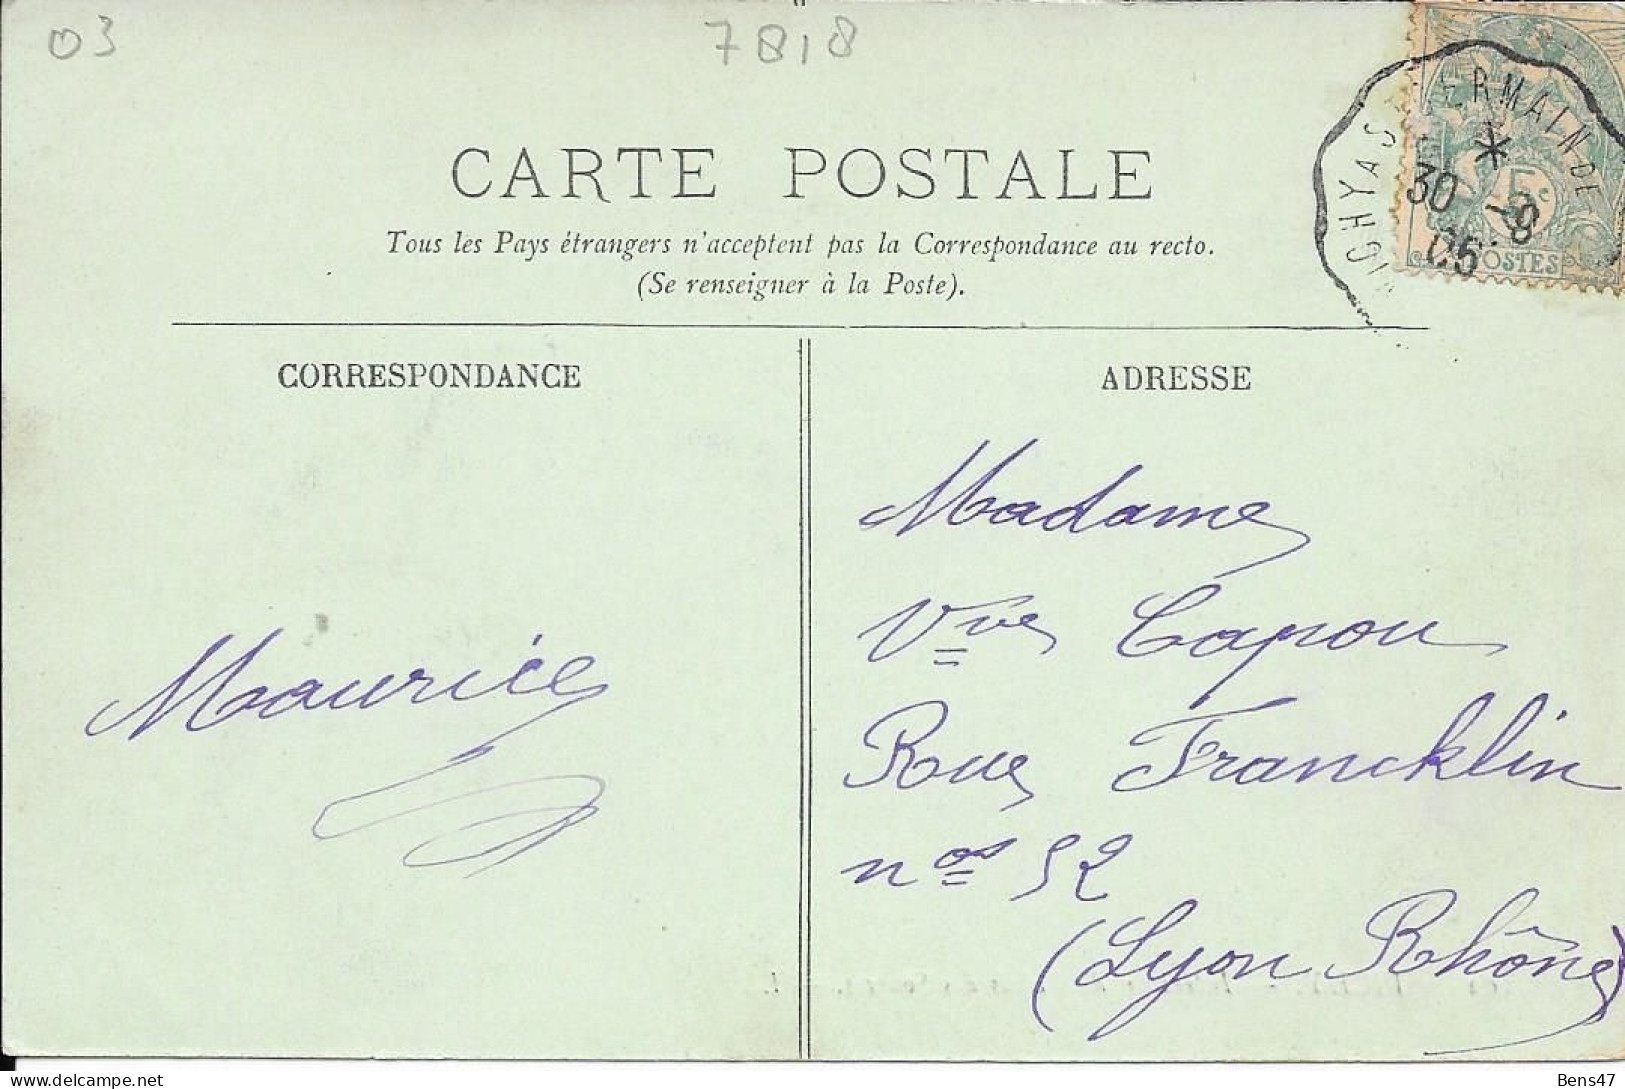 03
7818
VICHY A St GERMAIN DE
*
30 -8
05
5c
POSTES
CARTE POSTALE
Tous les Pays étrangers n'acceptent pas la Correspondance au recto.
(Se renseigner à la Poste).
CORRESPONDANCE
ADRESSE
Maurice
Madame
Vve Capou
Rue Francklin
nos 52
(Lyon Rhône)
Bens47